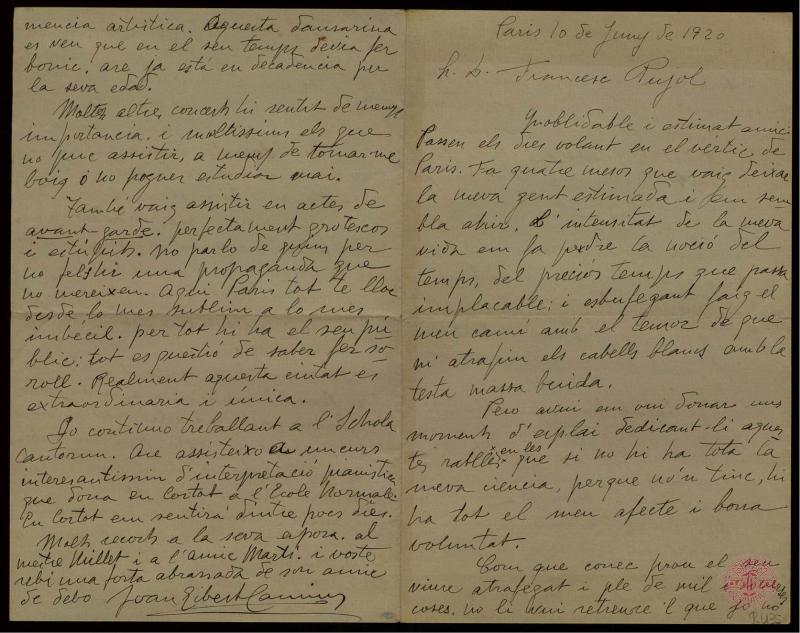 Paris 10 de Juny de 1920
h. D. Francesc Pujol
Inoblidable i estimat amic
Passen els dies volant en el vertic de
Paris. Fa quatre mesos que vaig deixar
la meva gent estimada i sem sem
bla ahir. L'intensitat de la meva
vida em fa perdre la noció del
temps, del preciós temps que passa
implacable; i esbufegant faig el
meu camí amb el temor de que
m'atrapin els cabells blancs amb la
testa massa buida.
Pero avui em vui donar uns
moments d'esplai dedicant-li aques
tes ratlles en les que si no hi ha tota la
meva ciencia, perque no'n tinc, hi
ha tot el meu afecte i bona
voluntat.
Com que conec prou el seu
viure atrafegat i ple de mil i
coses, no li vui retreure'l que jo no
mencia artistica. Aquesta dansarina
es veu que en el seu temps devia fer
bonic. are ja está en decadencia per
la seva edat.
Moltes altres concerts hi sentit de menys
importancia. i moltissims els que
no puc assistir, a menys de tornar-me
boig ó no poguer estudiar mai.
També vaig assistir en actes de
avant-garde. perfectament grotescos
i estúpits. No parlo de
no fels-hi una propaganda que
no mereixen. Aqui Paris tot te lloc
desde lo mes sublim a lo mes
imbécil. per tot hi ha el seu pú
blic; tot es questió de saber fer so-
roll. Realment aquesta ciutat és
extraordinaria i única.
Jo continuo treballant a l'Schola
Cantorum. Are assisteixo a un curs
interesantissim d'interpretació pianistica
que dona en Cortot a l'Ecole Normale.
En Cortot em sentirá dintre pocs dies.
Molts records a la seva esposa. al
mestre Millet i a l'amic Martí. i vosté
rebi una forta abrassada de son amic
de debó Joan Gibert Camins